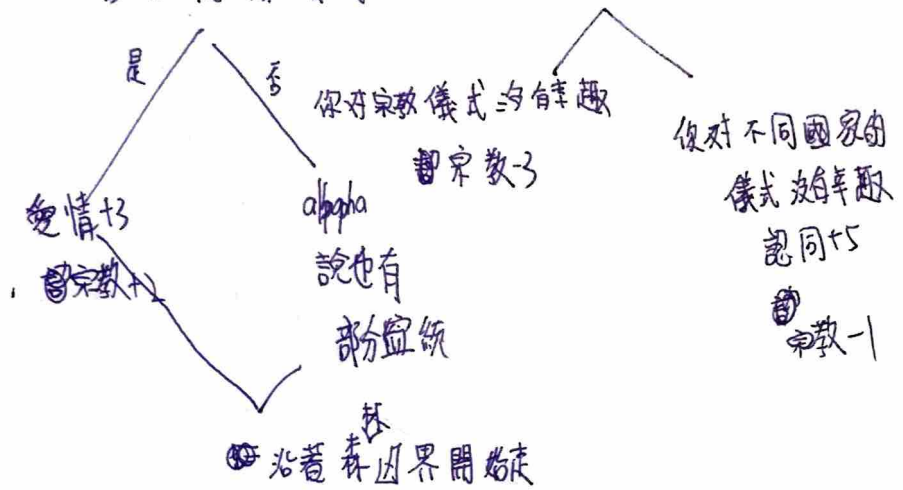 是
否
你对宗教儀式沒有幸趣
宗教-3
你对不同國家的
儀式沒有幸趣
認同+5
宗教-1
愛情+3
宗教+2
alppha
說也有
部分血統
沿著森林边界開始走